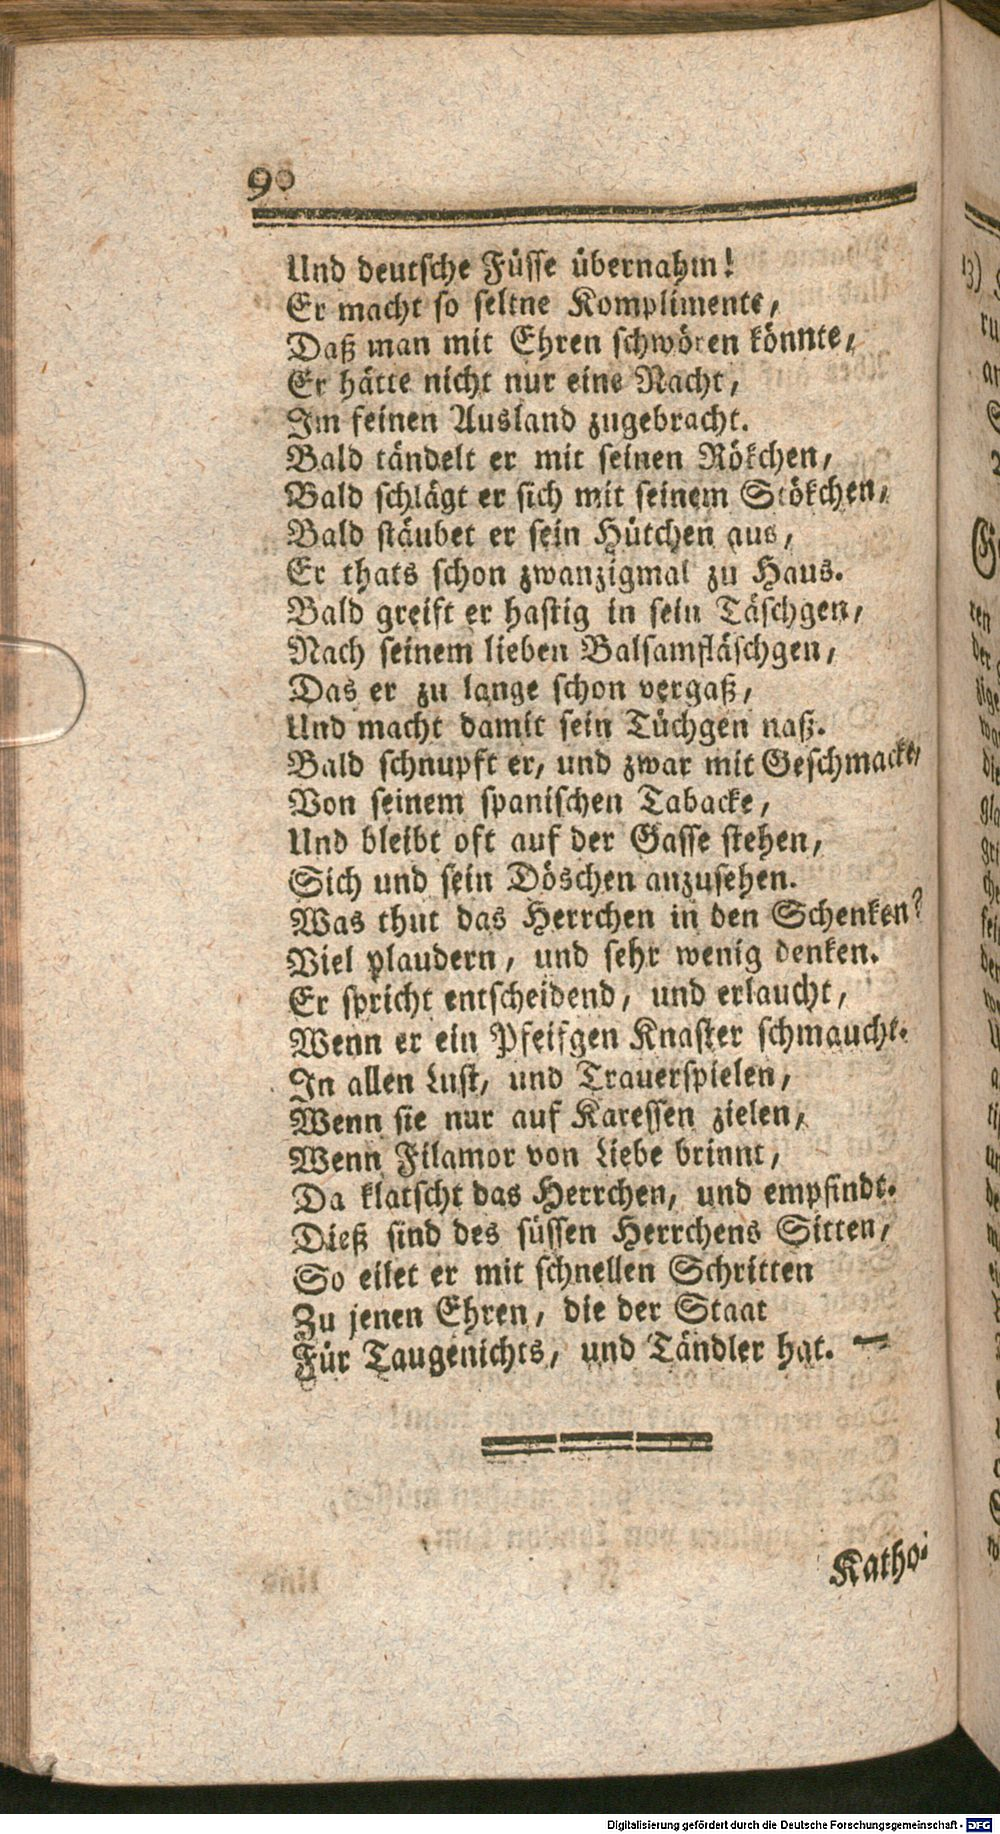 90
Und deutsche Füsse übernahm!
Er macht so seltne Komplimente,
Daß man mit Ehren schwören könnte,
Er hätte nicht nur eine Nacht,
Im feinen Ausland zugebracht.
Bald tändelt er mit seinen Rökchen,
Bald schlägt er sich mit seinem Stökchen,
Bald stäubet er sein Hütchen aus,
Er thats schon zwanzigmal zu Haus.
Bald greift er hastig in sein Täschgen,
Nach seinem lieben Balsamfläschgen,
Das er zu lange schon vergaß,
Und macht damit sein Tüchgen naß.
Bald schnupft er, und zwar mit Geschmacke,
Von seinem spanischen Tabacke,
Und bleibt oft auf der Gasse stehen,
Sich und sein Döschen anzusehen.
Was thut das Herrchen in den Schenken?
Viel plaudern, und sehr wenig denken.
Er spricht entscheidend, und erlaucht,
Wenn er ein Pfeifgen Knaster schmaucht.
In allen Lust, und Trauerspielen,
Wenn sie nur auf Karessen zielen,
Wenn Filamor von Liebe brinnt,
Da klatscht das Herrchen, und empfindt.
Dieß sind des süssen Herrchens Sitten,
So eilet er mit schnellen Schritten
Zu jenen Ehren, die der Staat
Für Taugenichts, und Tändler hat. —
Katho-
Digitalisierung gefördert durch die Deutsche Forschungsgemeinschaft - DFG